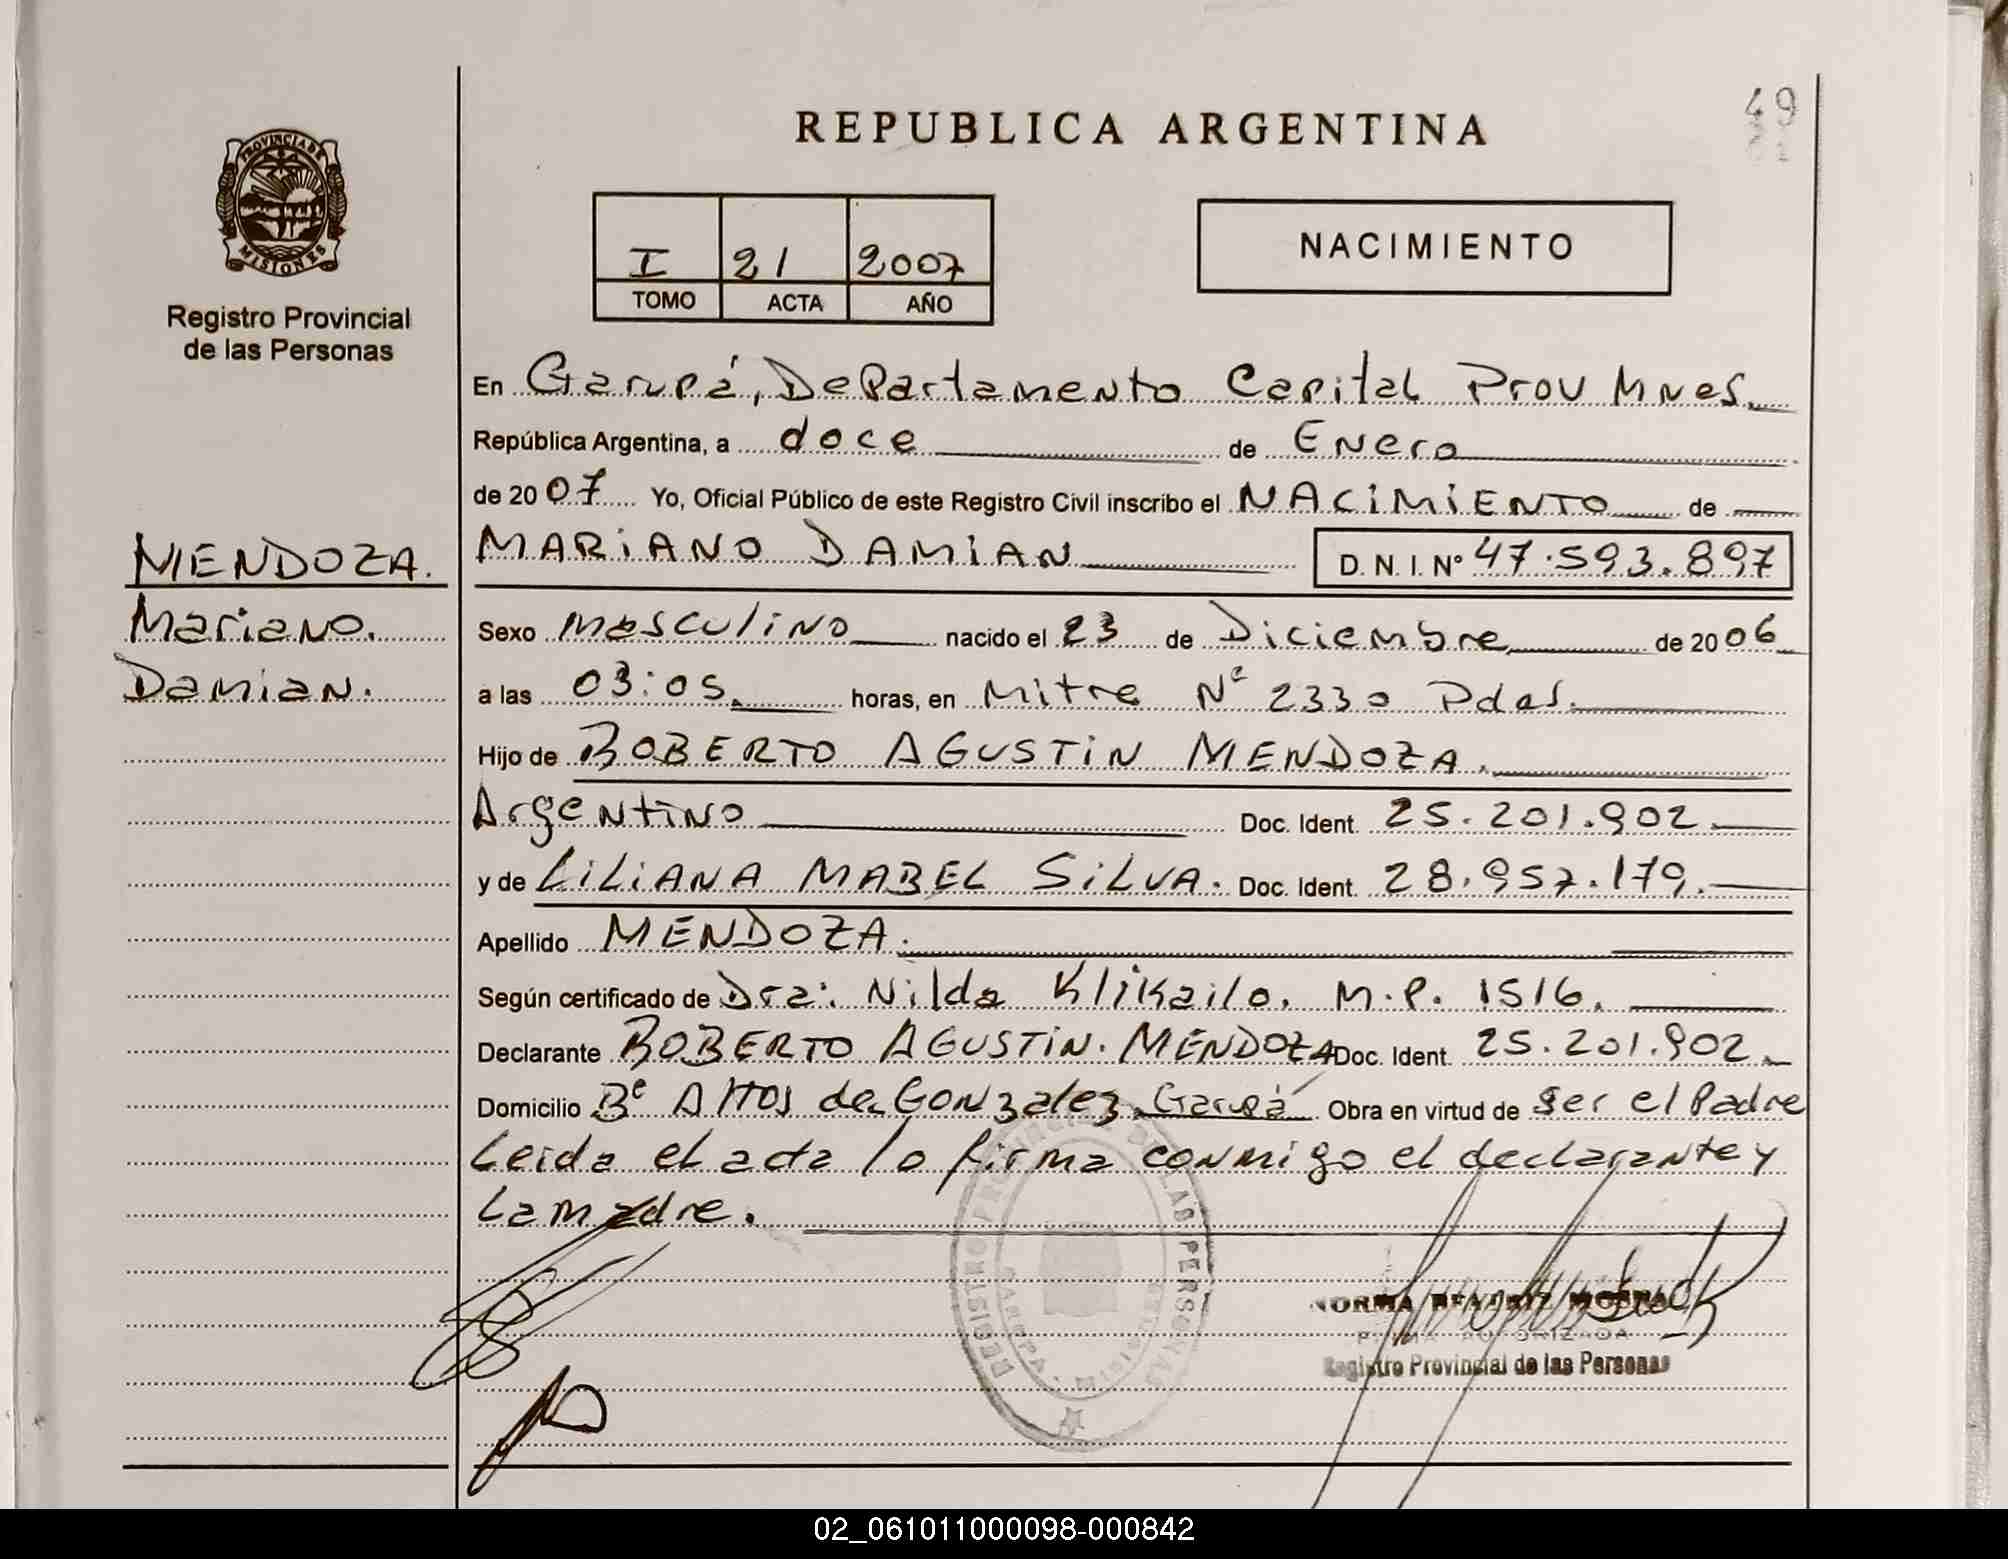 REPUBLICA ARGENTINA
49
PROVINCIA DE
MISIONES
Registro Provincial
de las Personas
I 21 2007
TOMO ACTA AÑO
NACIMIENTO
En Garupá, Departamento Capital Prov Mnes.
República Argentina, a doce de Enero
de 2007 Yo, Oficial Público de este Registro Civil inscribo el NACIMIENTO de
MARIANO DAMIAN D. N. I. Nº 47.593.897
MENDOZA.
Mariano.
Damian.
Sexo masculino nacido el 23 de Diciembre de 2006
a las 03:05. horas, en Mitre Nº 2330 Pdas.
Hijo de ROBERTO AGUSTIN MENDOZA.
Argentino Doc. Ident. 25.201.902.
y de LILIANA MABEL SILVA. Doc. Ident. 28.957.179.
Apellido MENDOZA.
Según certificado de Dra. Nilda Klikailo. M.P. 1516.
Declarante ROBERTO AGUSTIN. MENDOZA Doc. Ident. 25.201.902.
Domicilio Bº Altos de Gonzalez, Garupá. Obra en virtud de Ser el Padre
Leida el acta lo firma conmigo el declarante y
La madre.
REGISTRO PROVINCIAL DE LAS PERSONAS
NORMA BEATRIZ
FIRMA AUTORIZADA
Registro Provincial de las Personas
02_061011000098-000842